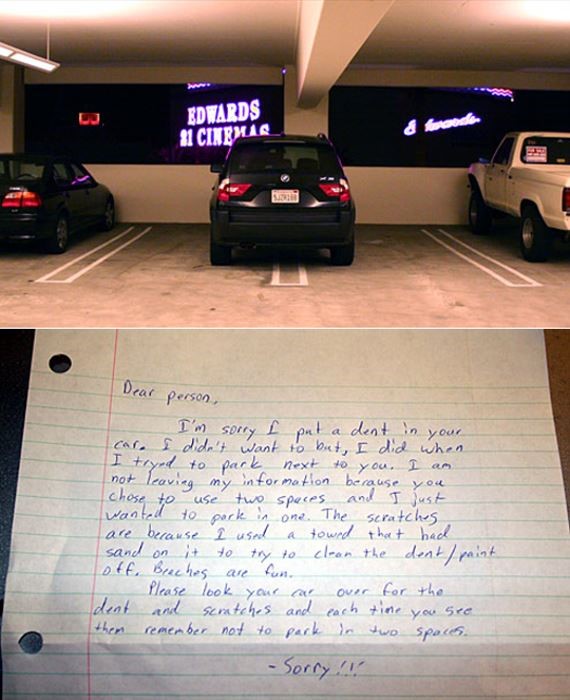 EDWARDS
21 CINEMAS
Edwards
X3
FOR SALE
Dear person,
I'm sorry I put a dent in your
car. I didn't want to but, I did when
I tryed to park next to you. I am
not leaving my information because you
chose to use two spaces and I just
wanted to park in one. The scratches
are because I used a towel that had
sand on it to try to clean the dent/paint
off. Beaches are fun.
Please look your car over for the
dent and scratches and each time you see
them remember not to park in two spaces.
- Sorry!!!